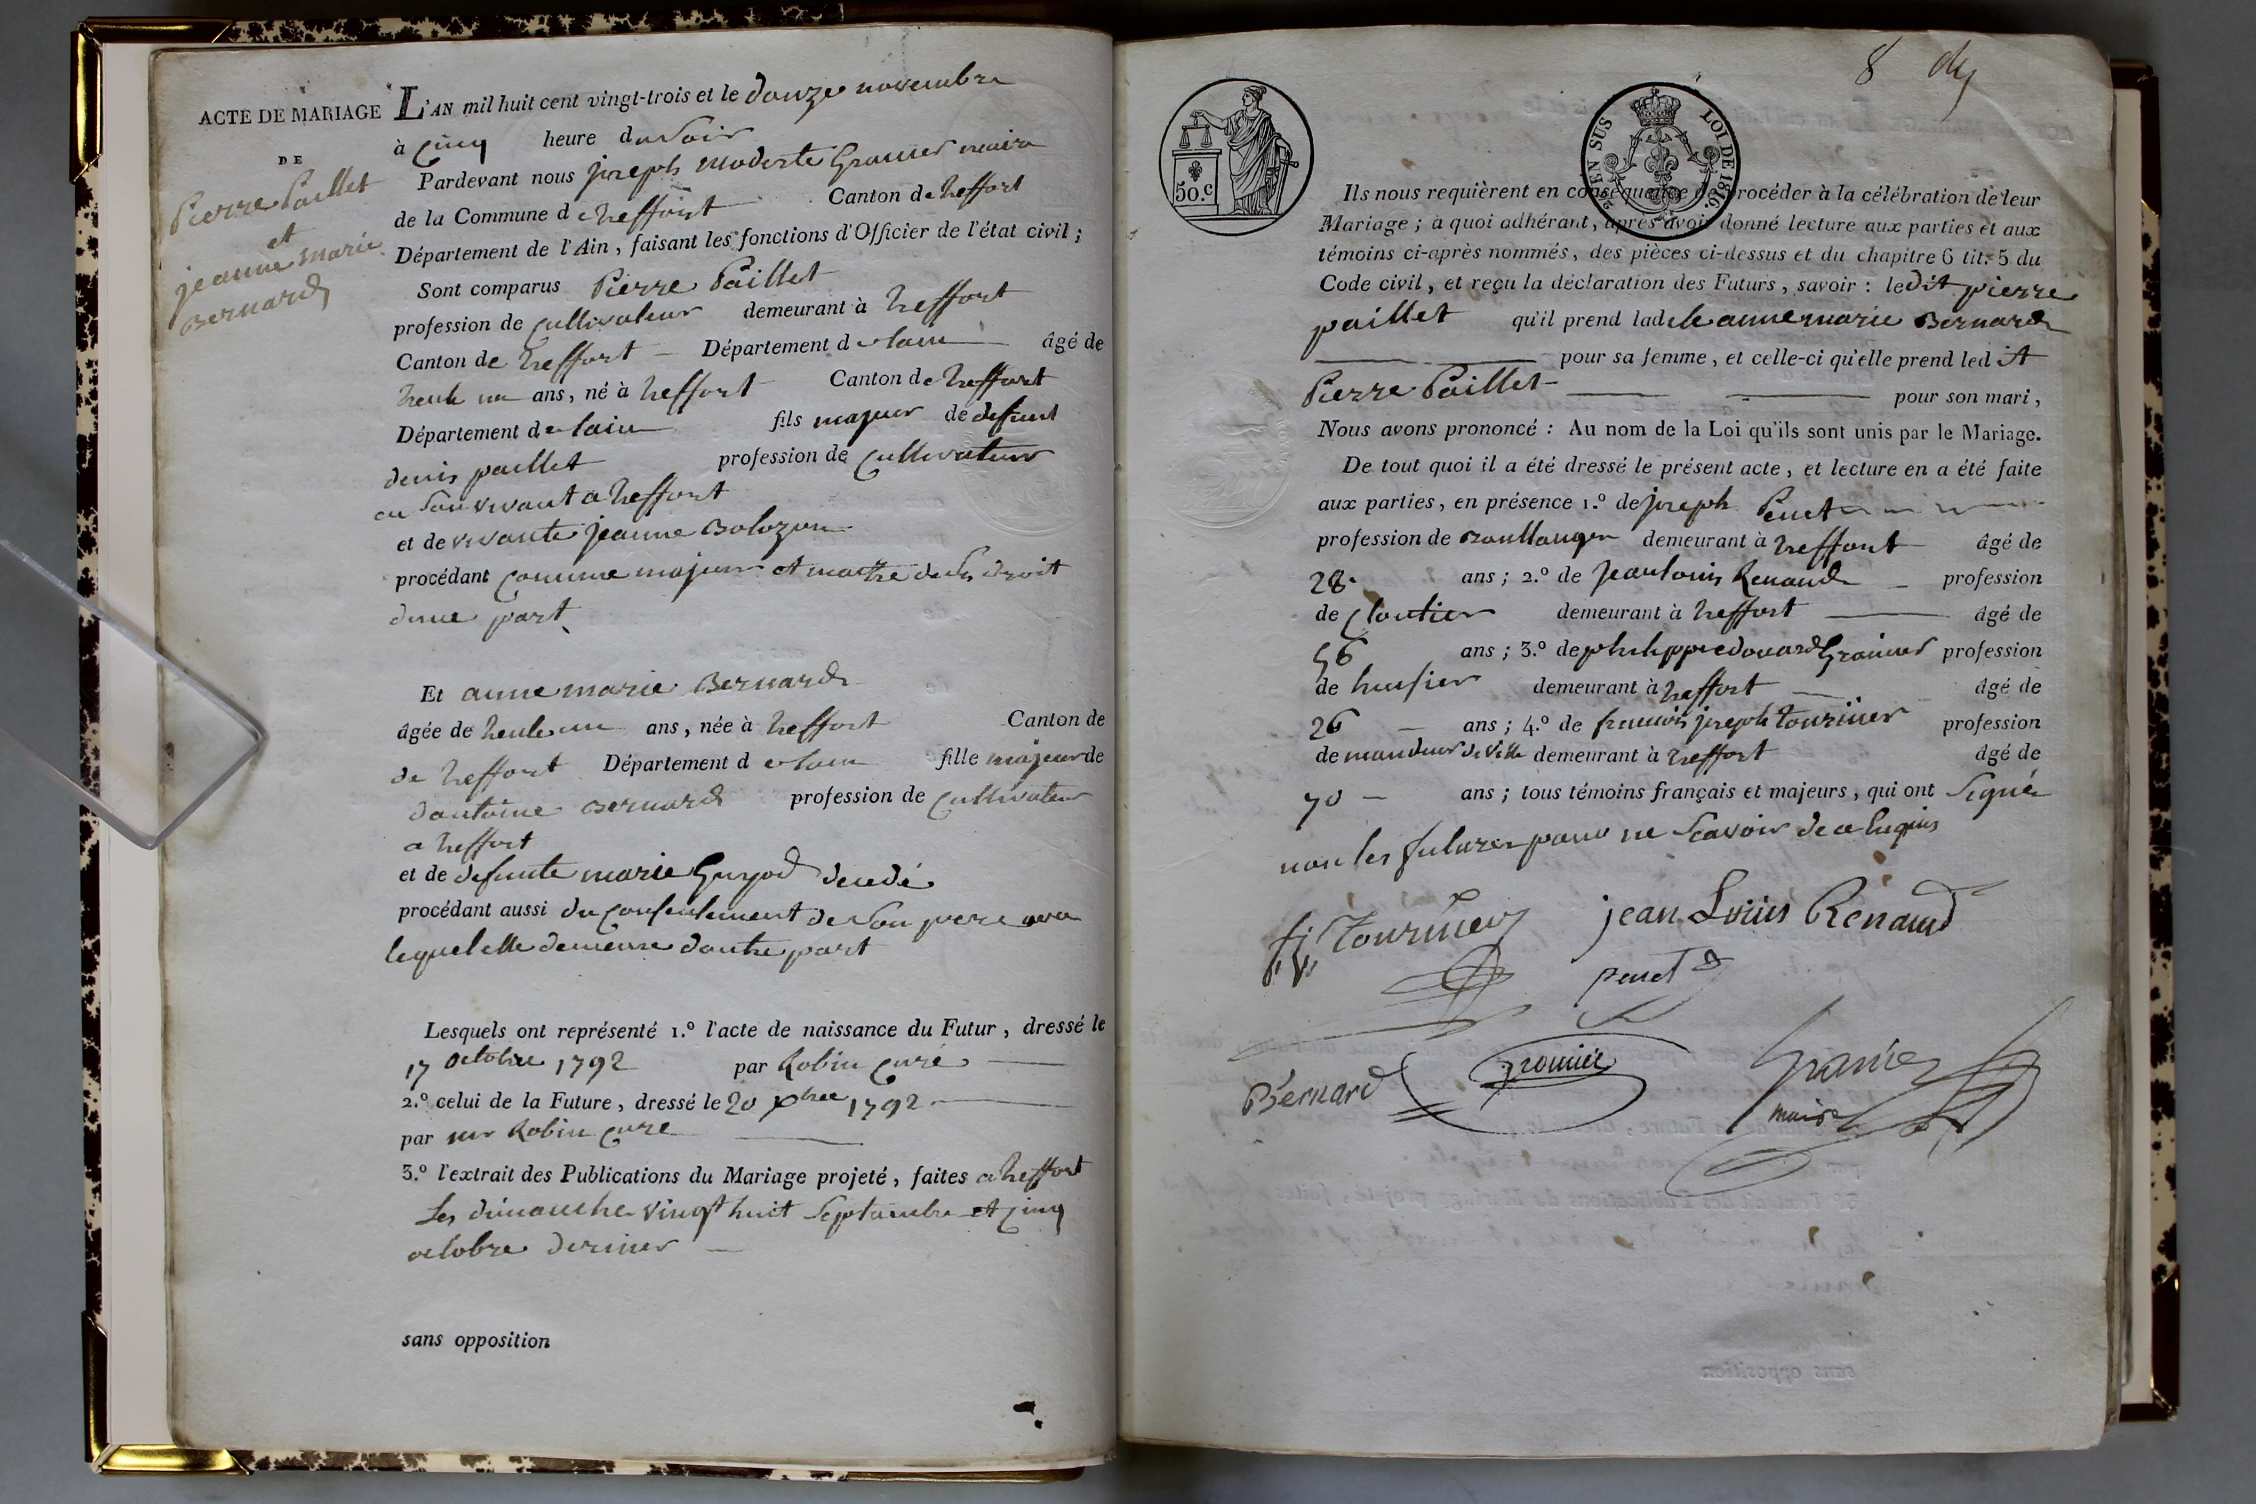 ACTE DE MARIAGE
DE
Pierre Paillet
et
jeanne marie
Bernard
L'AN mil huit cent vingt-trois et le douze novembre
à cinq heure du Soir
Pardevant nous joseph modeste Granier maire
de la Commune de treffort Canton de treffort
Département de l'Ain, faisant les fonctions d'Officier de l'état civil;
Sont comparus Pierre Paillet
profession de Cultivateur demeurant à treffort
Canton de treffort Département de lain âgé de
trente un ans, né à treffort Canton de treffort
Département de lain fils majeur de defunt
denis paillet profession de Cultivateur
en Son vivant a treffort
et de vivante jeanne Bolozon
procédant comme majeur et maitre de Ses droit
dune part
Et anne marie Bernard
âgée de trente un ans, née à treffort Canton de
de treffort Département de lain fille majeur de
dantoine Bernard profession de Cultivateur
a treffort
et de defunte marie Guyod decedé
procédant aussi du consentement de Son pere avec
lequel elle demeure dautre part
Lesquels ont représenté 1.º l'acte de naissance du Futur, dressé le
17 octobre 1792 par Robin curé
2.º celui de la Future, dressé le 20 xbre 1792
par mr Robin curé
3.º l'extrait des Publications du Mariage projeté, faites a treffort
Les dimanche vingt huit Septembre et cinq
octobre dernier
sans opposition
8
50.c
EN SUS LOI DE 1816.
Ils nous requièrent en conséquence de procéder à la célébration de leur
Mariage; à quoi adhérant, après avoir donné lecture aux parties et aux
témoins ci-après nommés, des pièces ci-dessus et du chapitre 6 tit. 5 du
Code civil, et reçu la déclaration des Futurs, savoir: ledit pierre
paillet qu'il prend lad. anne marie Bernard
pour sa femme, et celle-ci qu'elle prend ledit
Pierre Paillet pour son mari,
Nous avons prononcé: Au nom de la Loi qu'ils sont unis par le Mariage.
De tout quoi il a été dressé le présent acte, et lecture en a été faite
aux parties, en présence 1.º de joseph Penet
profession de Boullanger demeurant à treffort âgé de
28 ans; 2.º de jean louis Renaud profession
de Cloutier demeurant à treffort âgé de
56 ans; 3.º de philippe edouard Granier profession
de huisier demeurant à treffort âgé de
26 ans; 4.º de francois joseph tournier profession
de mandeur de ville demeurant à treffort âgé de
70 ans; tous témoins français et majeurs, qui ont Signé
non les futures pour ne Scavoir de ce enquis
fj Tournier
jean Louis Renaud
penet
Bernard
Granier
Granier
maire